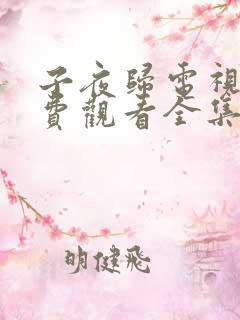 子夜歸電視
費觀看全集
明健飛